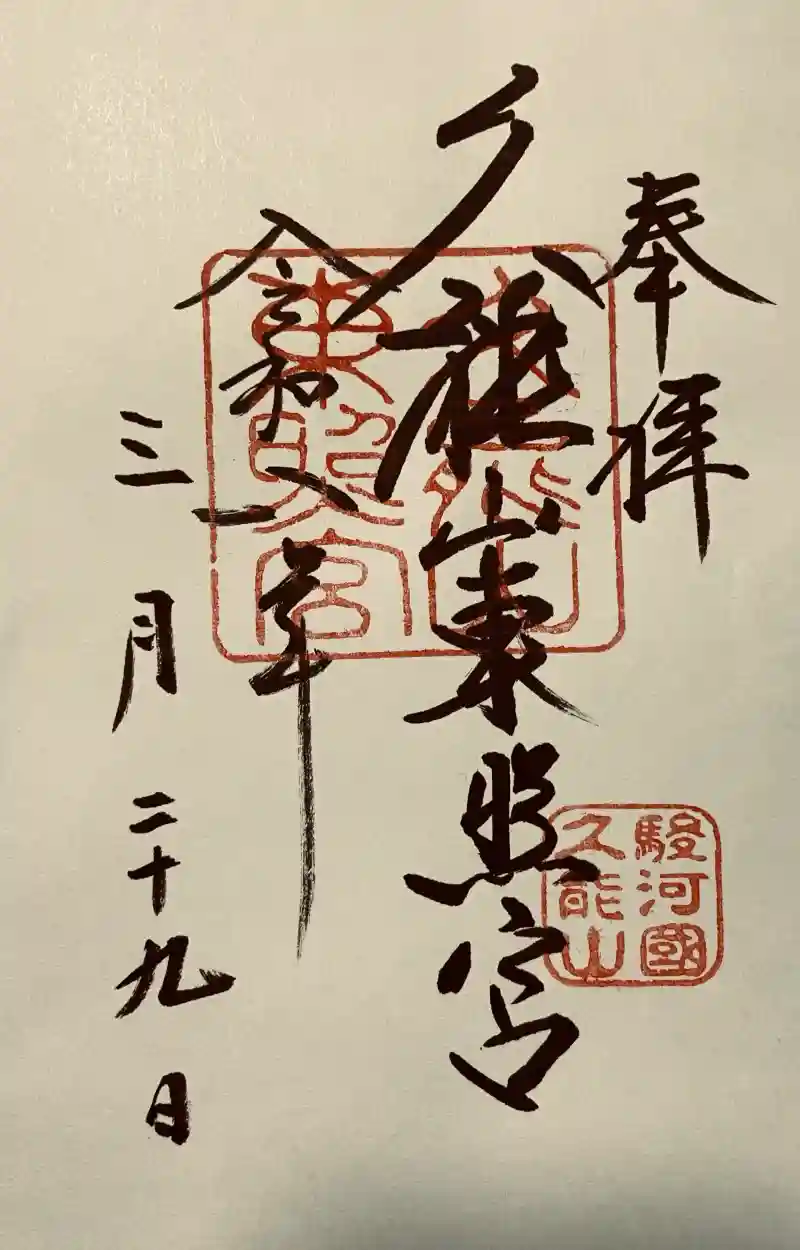 奉拝
久能山東照宮
令和八年
三月二十九日
久能山
東照宮
駿河國
久能山